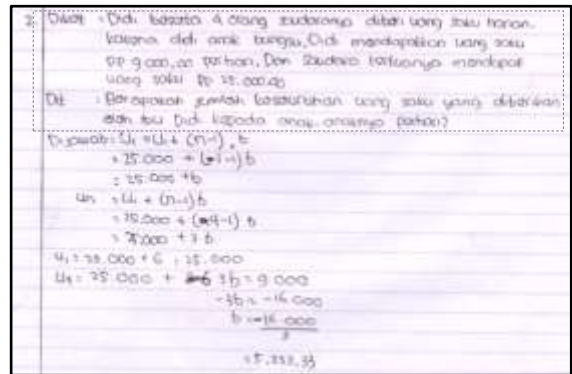 2. Diket : Didi beserta 4 orang saudaranya diberi uang saku harian.
karena didi anak bungsu, Didi mendapatkan uang saku
Rp 9.000,00 perhari, Dan Saudara tertuanya mendapat
uang saku Rp 25.000,00
Dit : Berapakah jumlah keseluruhan uang saku yang diberikan
oleh Ibu Didi kepada anak-anaknya perhari?
Dijawab : U₁ = U₁ + (n-1) . b
= 25.000 + (1-1) b
= 25.000 + b
Un = U₁ + (n-1) b
= 25.000 + (4-1) b
= 25.000 + 3 b
U₁ = 25.000 + b = 25.000
U₄ = 25.000 + 3b = 9.000
-3b = -16.000
b = -16.000
3
= 5.333,33